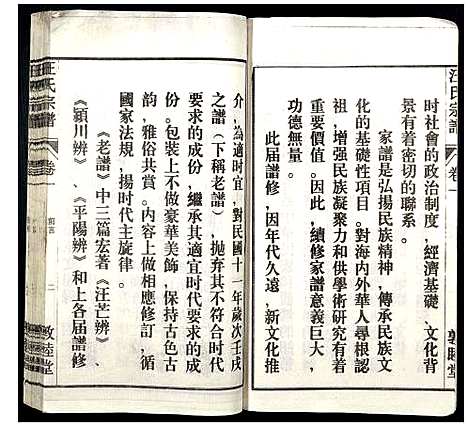 汪氏宗譜
卷一
敦睦堂
时社會的政治制度，經濟基礎、文化背
景有着密切的聯系。
家譜是弘揚民族精神，傳承民族文
化的基礎性項目。對海内外華人尋根認
祖，增强民族凝聚力和供學術研究有着
重要價值。因此，續修家譜意義巨大，
功德無量。
此届譜修，因年代久遠，新文化推
介，為適时宜，對民國十一年歲次壬戌
之譜（下稱老譜），抛弃其不符合时代
要求的成份，繼承其適宜时代要求的成
份。包裝上不做豪華美飾，保持古色古
韵，雅俗共赏。内容上做相應修訂，循
國家法规，揚时代主旋律。
《老譜》中三篇宏著《汪芒辨》、
《潁川辨》、《平陽辨》和上各届譜修
汪氏宗譜
卷一
二
敦睦堂